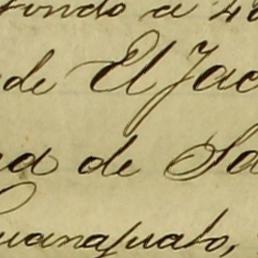 fondo a 40
de El Jac
ad de Sa
Guanajuato,